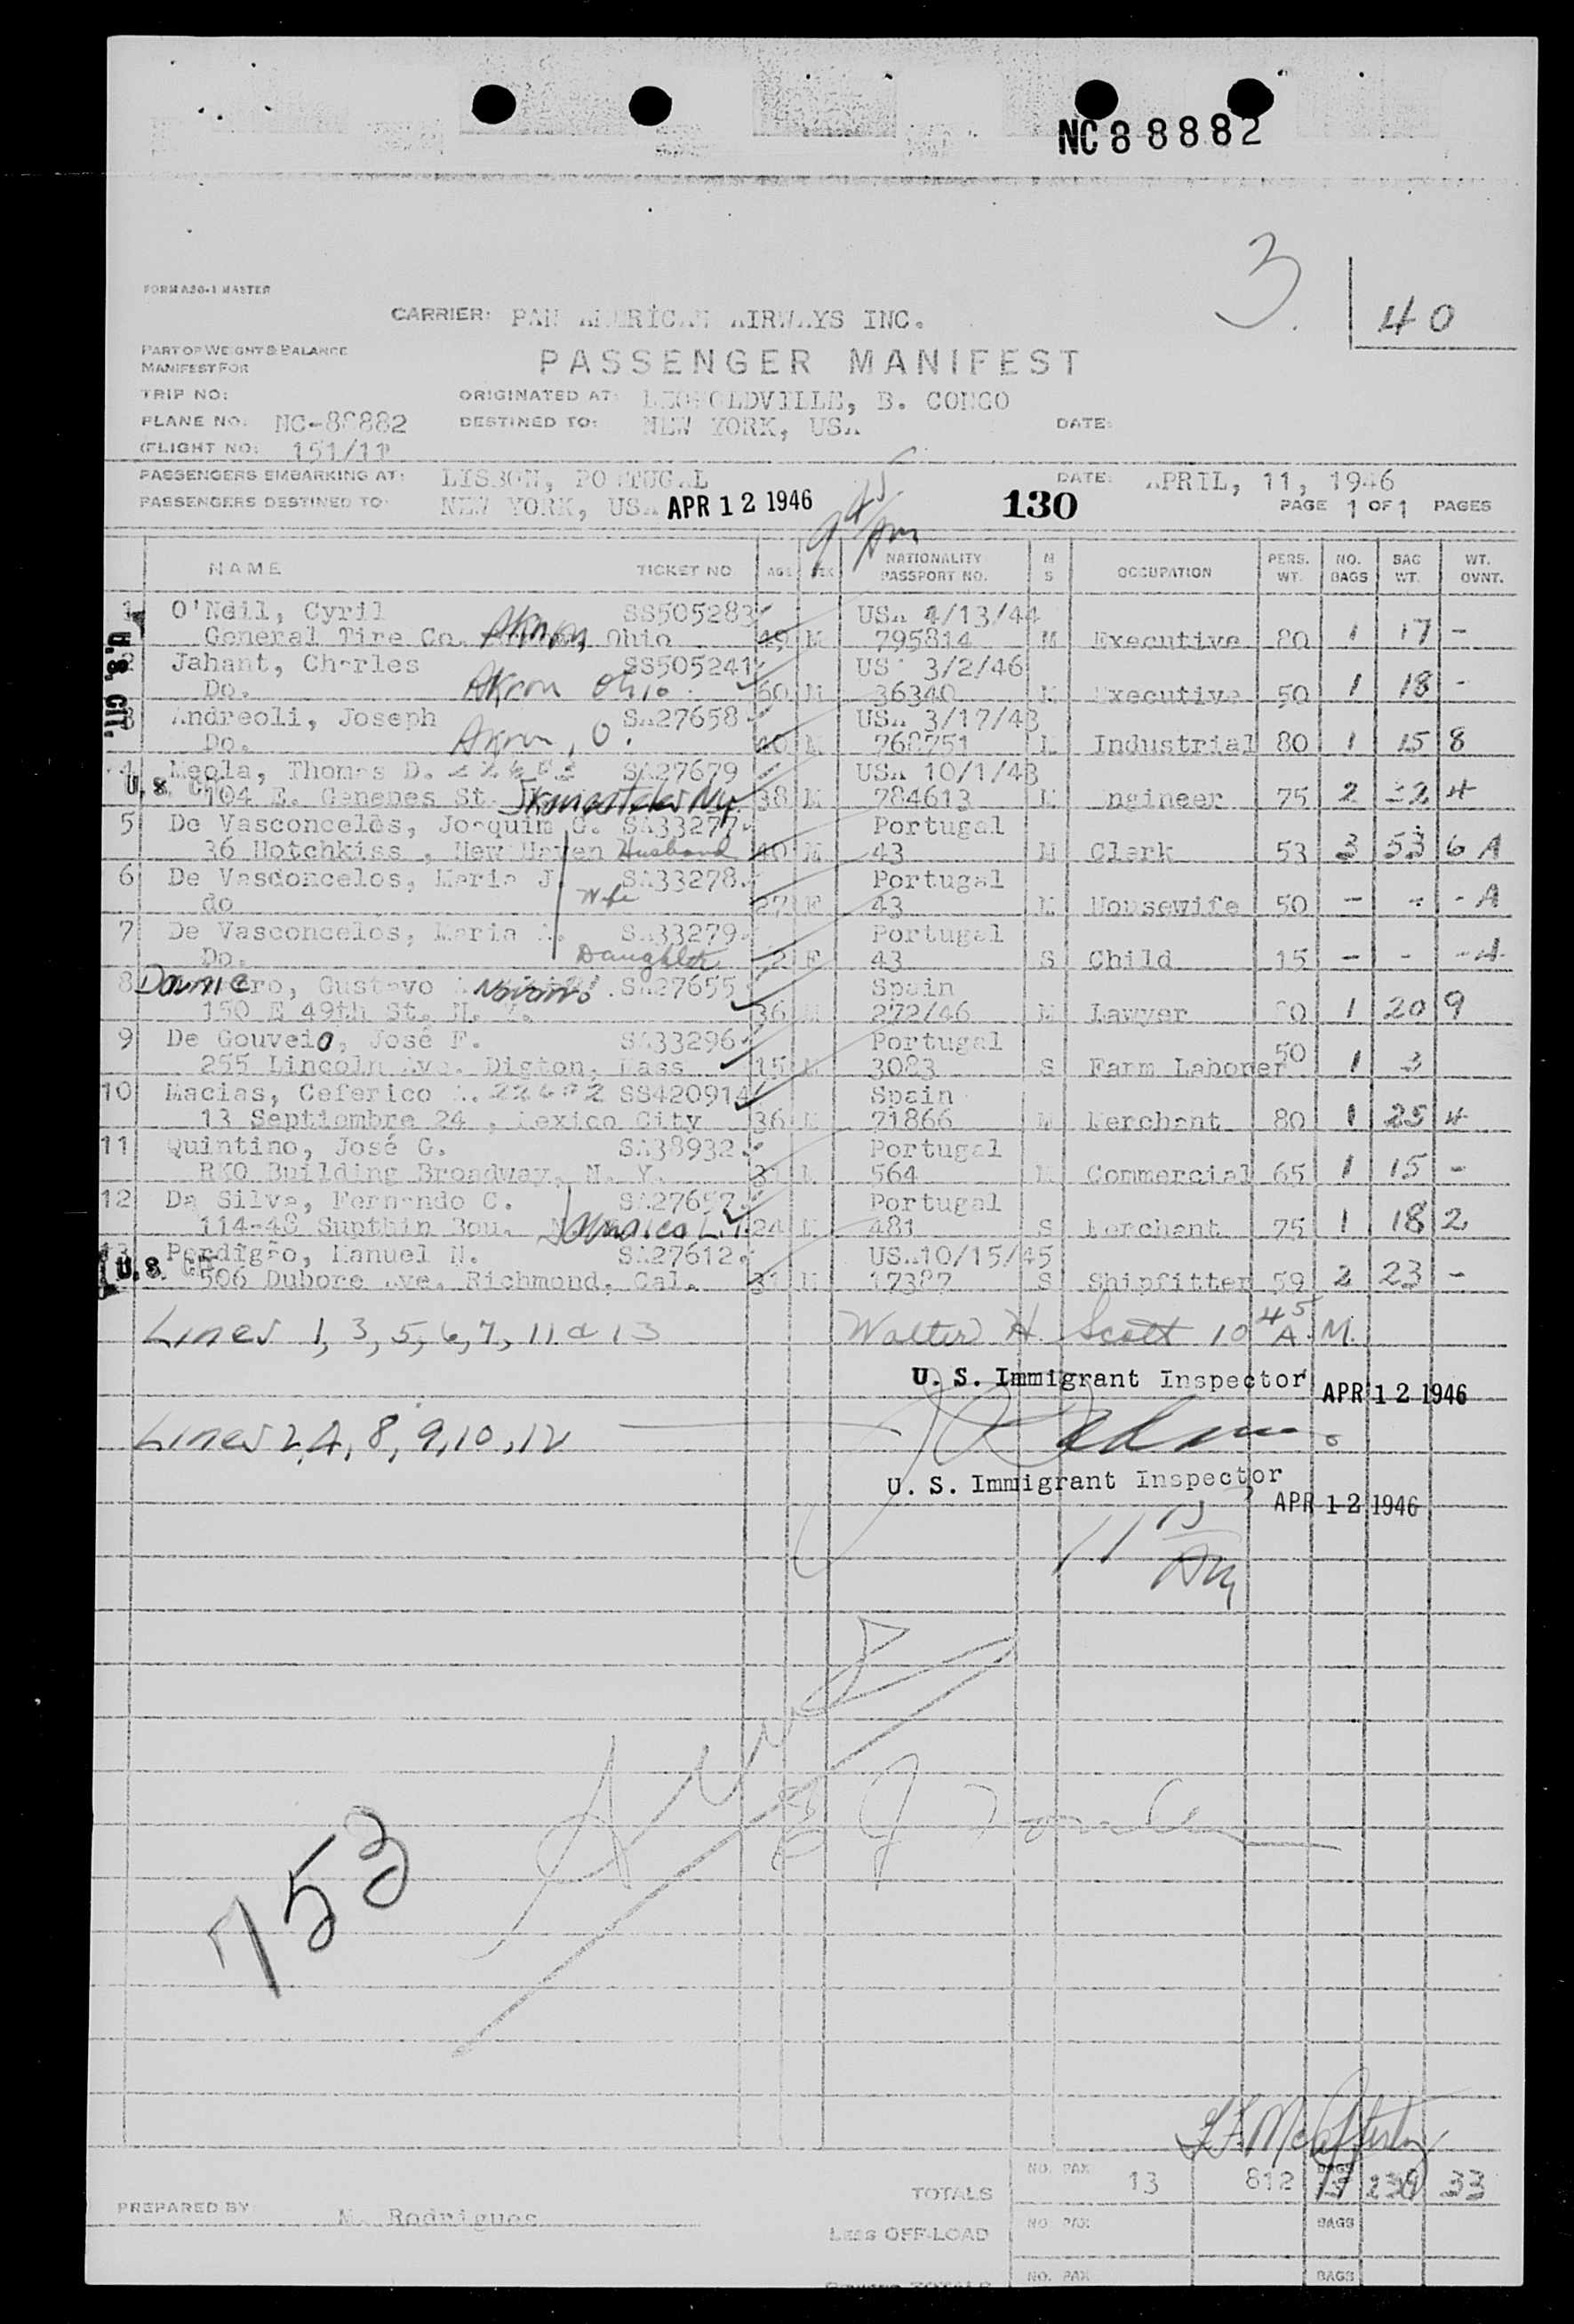 NC 88882
3.
40
FORM A20-1 MASTER
CARRIER: PAN AMERICAN AIRWAYS INC.
PART OF WEIGHT & BALANCE
MANIFEST FOR
PASSENGER MANIFEST
TRIP NO:
ORIGINATED AT: LEOPOLDVILLE, B. CONGO
PLANE NO. NC-88882
DESTINED TO: NEW YORK, USA
DATE:
(FLIGHT NO: 151/11
PASSENGERS EMBARKING AT: LISBON, PORTUGAL
DATE: APRIL, 11, 1946
PASSENGERS DESTINED TO: NEW YORK, USA APR 12 1946
945 Am
130
PAGE 1 OF 1 PAGES
NAME TICKET NO AGE SEX NATIONALITY PASSPORT NO. M S OCCUPATION PERS. WT. NO. BAGS BAG WT. WT. OVNT.
1 O'Neil, Cyril SS505283 USA 4/13/44
General Tire Co. Akron, Ohio 49 M 795814 M Executive 80 1 17 -
U.S. CIT.
2 Jahant, Charles SS505241 US 3/2/46
Do. Akron Ohio 60 M 36340 M Executive 50 1 18 -
3 Andreoli, Joseph SA27658 USA 3/17/43
Do. Akron, O. 40 M 768751 M Industrial 80 1 15 8
4 Meola, Thomas D. SA27679 USA 10/1/43
U.S. CIT
104 E. Genenes St. 38 M 784613 M Engineer 75 2 32 4
5 De Vasconcelos, Joaquim G. SA33277
Portugal
36 Hotchkiss, New Haven Husband 40 M 43 M Clerk 53 3 53 6 A
6 De Vasconcelos, Maria J. SA33278. Portugal
do Wife 27 F 43 M Housewife 50 - - - A
7 De Vasconcelos, Maria SA33279 Portugal
Do. Daughter 2 F 43 S Child 15 - - - A
8 Gustavo Navarro SA27655 Spain
150 E 49th St. N. Y. 36 M 272/46 M Lawyer 80 1 20 9
9 De Gouveia, José F. SA33296 Portugal
255 Lincoln Ave. Digton, Mass 15 M 3083 S Farm Laborer 50 1 3
10 Macias, Ceferico SS420914 Spain
13 Septiembre 24, Mexico City 36 M 71866 M Merchant 80 1 25 4
11 Quintino, José G. SA38932. Portugal
RKO Building Broadway, N. Y. 31 M 564 M Commercial 65 1 15 -
12 Da Silva, Fernando C. SA27657. Portugal
114-48 Supthin Bou. Jamaica L.I. 24 M 481 S Merchant 75 1 18 2
13 Perdigão, Manuel N. SA27612. USA 10/15/45
U.S. CIT
506 Dubore Ave. Richmond, Cal. 31 M 17387 S Shipfitter 59 2 23 -
Lines 1, 3, 5, 6, 7, 11 & 13 Walter H. Scott 10 45 A.M.
U. S. Immigrant Inspector APR 12 1946
Lines 2, 4, 8, 9, 10, 12
U. S. Immigrant Inspector
APR 12 1946
11 15 Am
753
TOTALS NO. PAX 13 812 BAGS 239 33
PREPARED BY: M. Rodrigues
Less OFF-LOAD NO. PAX BAGS
NO. PAX BAGS